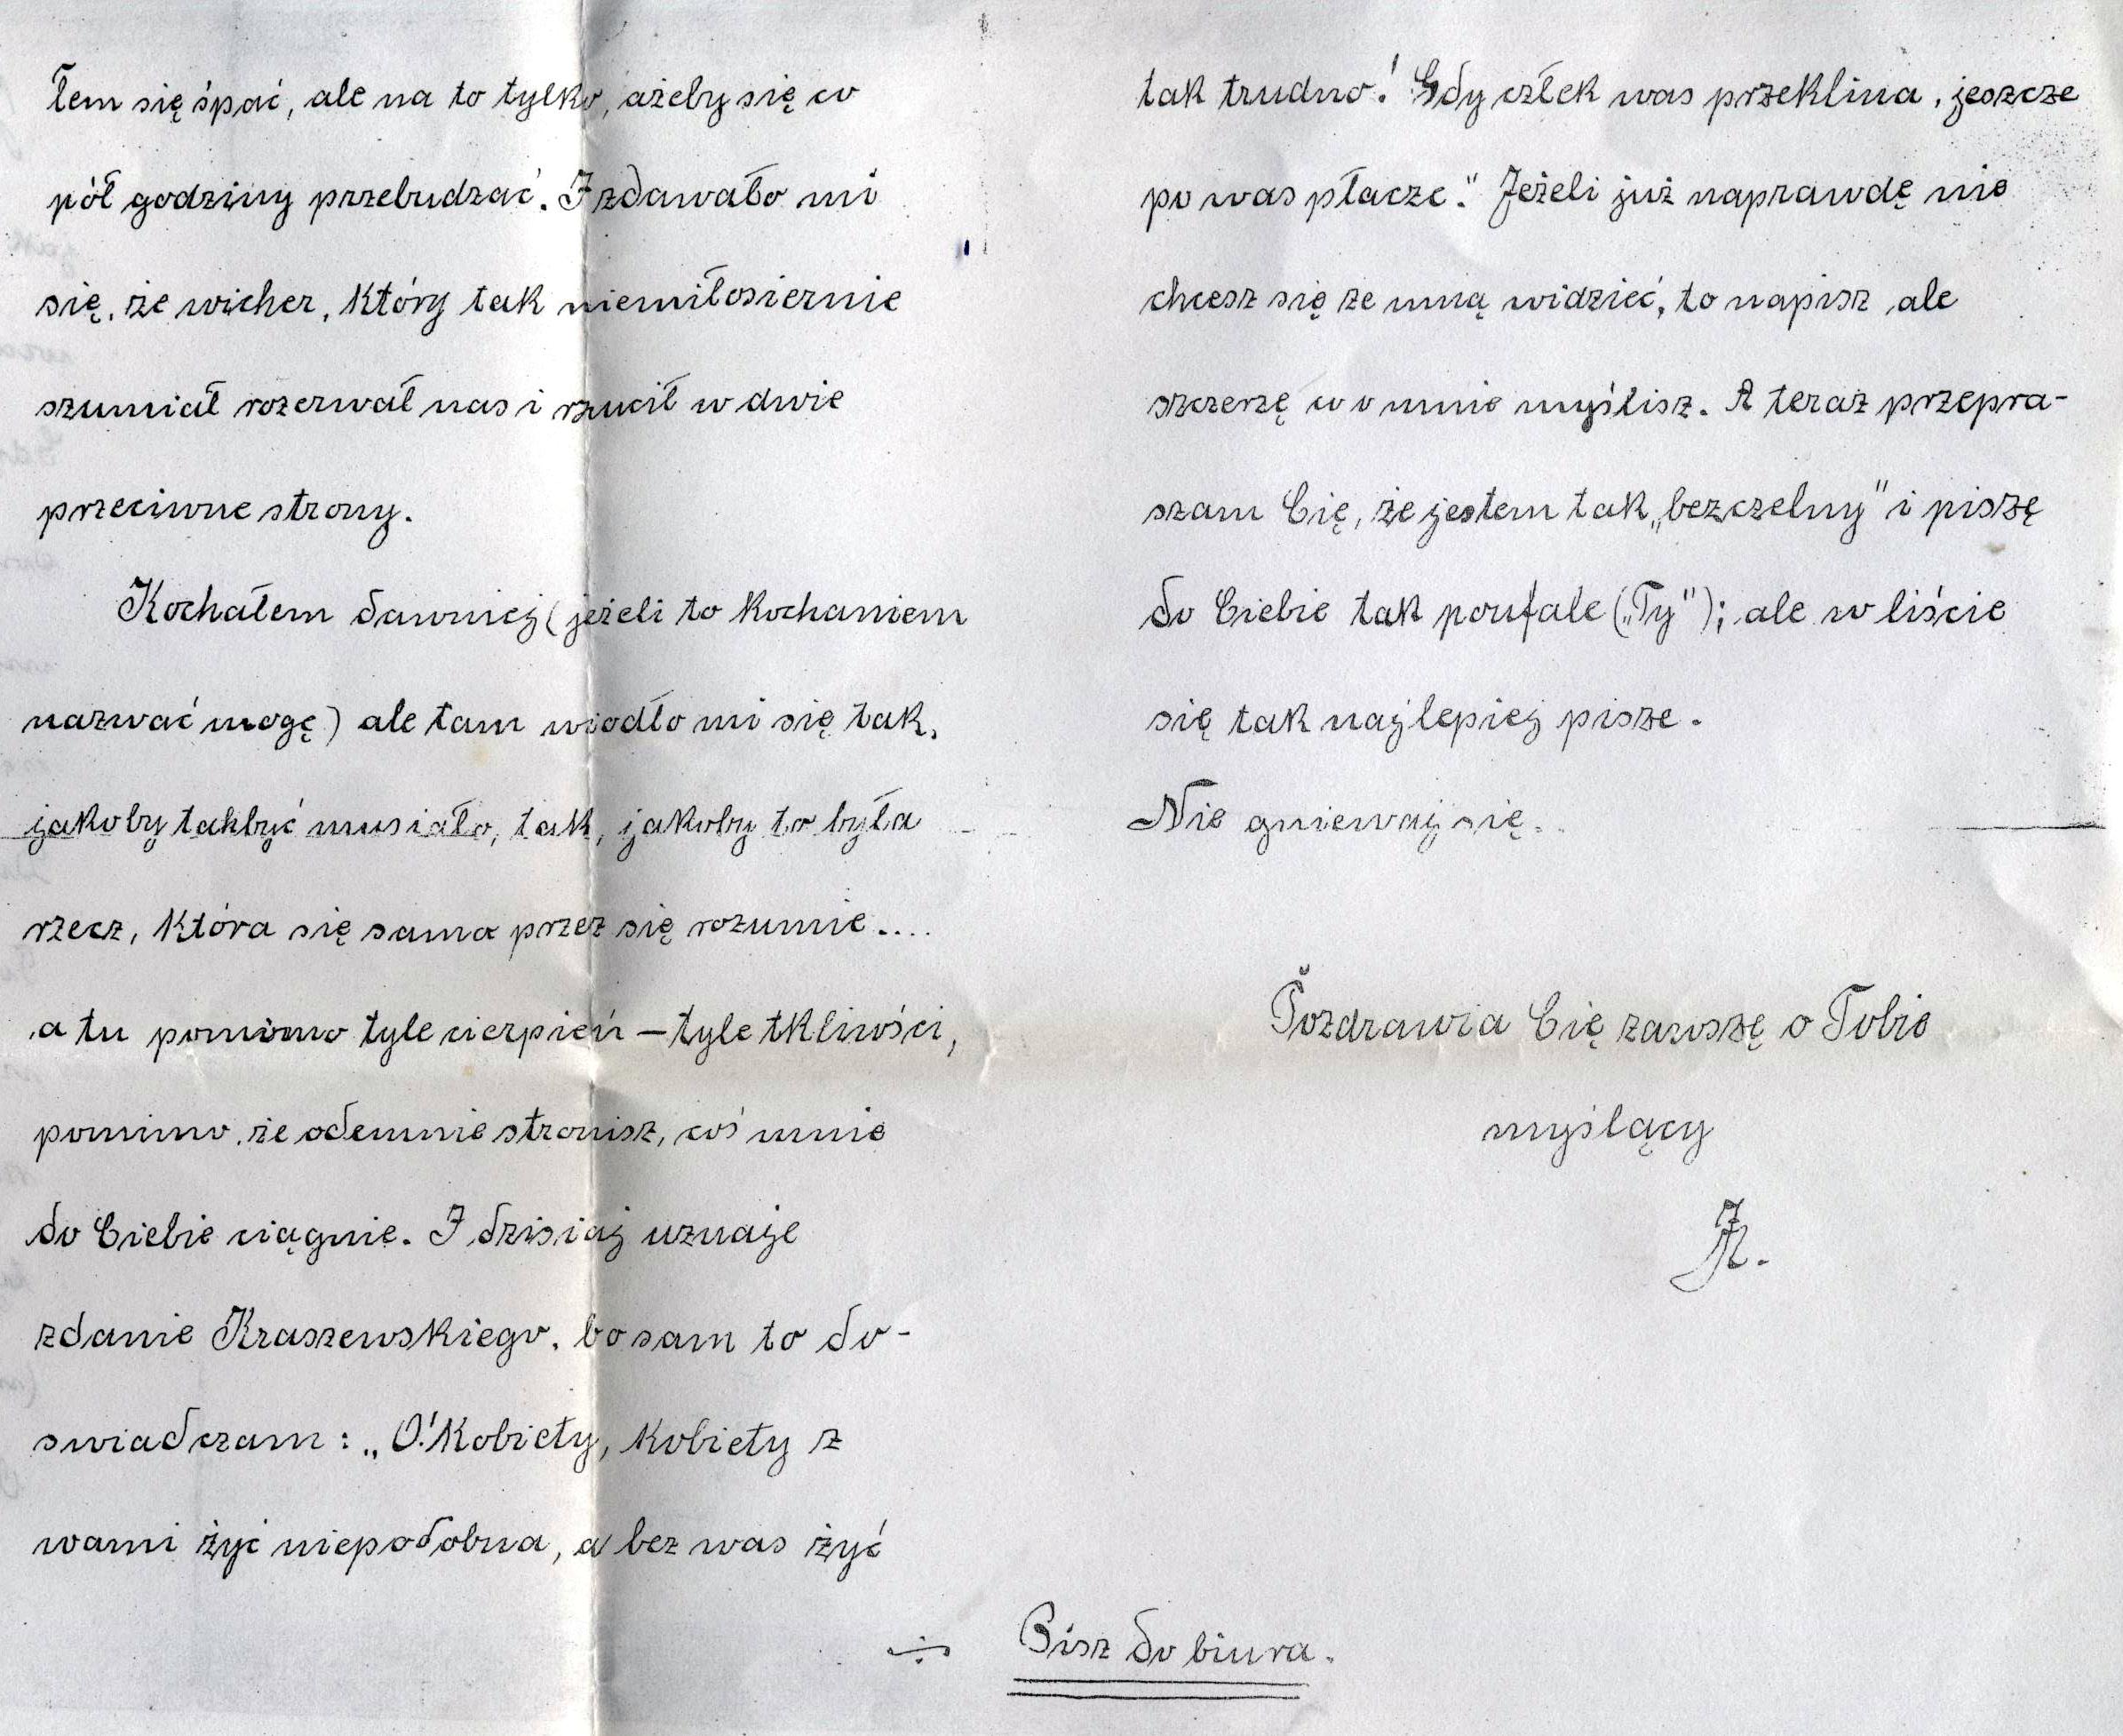 łem się spać, ale na to tylko, ażeby się co
pół godziny przebudzać. I zdawało mi
się, że wicher, który tak niemiłosiernie
szumiał rozerwał nas i rzucił w dwie
przeciwne strony.
Kochałem dawniej (jeżeli to kochaniem
nazwać mogę) ale tam wiodło mi się tak,
jakoby takbyć musiało, tak, jakoby to była
rzecz, która się sama przez się rozumie....
a tu pomimo tyle cierpień – tyle tkliwości,
pomimo, że odemnie stronisz, coś mnie
do Ciebie ciągnie. I dzisiaj uznaje
zdanie Kraszewskiego, bo sam to do-
swiadczam: „O! Kobiety, kobiety z
wami żyć niepodobna, a bez was żyć
tak trudno! Gdy człek was przeklina, jeszcze
po was płacze." Jeżeli już naprawdę nie
chcesz się ze mną widzieć, to napisz, ale
szczerzę co o mnie myślisz. A teraz przepra-
szam Cię, że jestem tak „bezczelny" i piszę
do Ciebie tak poufale („Ty"); ale w liście
się tak najlepiej pisze.
Nie gniewaj się.
Pozdrawia Cię zawszę o Tobie
myślący
Pisz do biura.